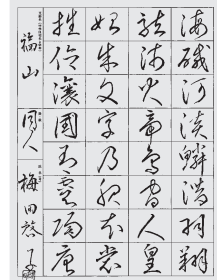 海鹹河淡鱗潜羽翔
龍師火帝鳥官人皇
始制文字乃服衣裳
推位讓國有虞陶唐
福山
同人
梅田啓子